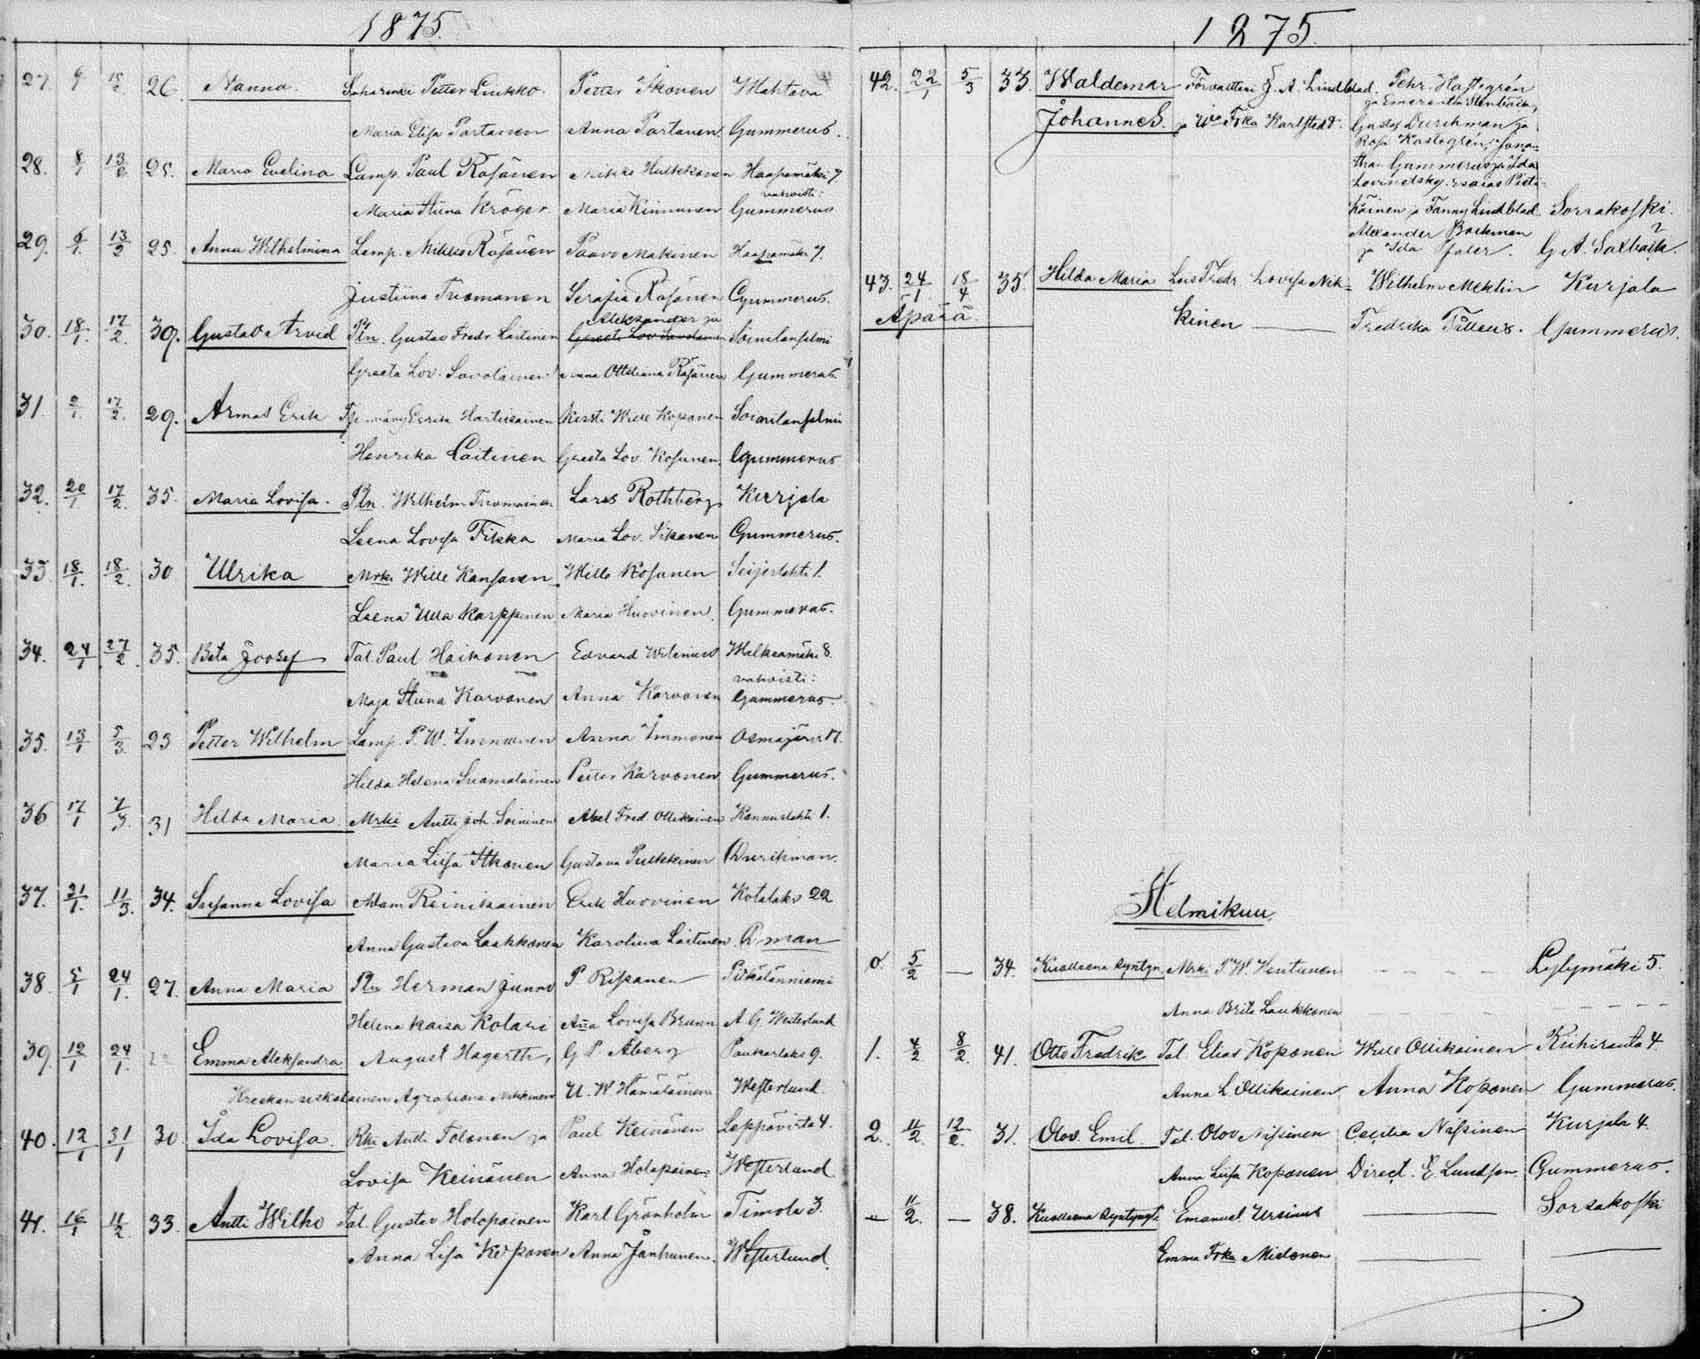 1875.
27. 9/1 15/2 26. Nanna. Petter Liukko. Petter Ikonen
Maria Elisa Partanen Anna Partanen Gummerus.
28. 8/1 13/2 25. Maria Evelina Lamp. Paul Räsänen Mikko Hulkkonen Haapamäki 7
vahvisti:
Maria Stiina Kröger Maria Kinnunen Gummerus
29. 6/1 13/2 25. Anna Wilhelmina Lamp. Mikko Räsänen Paavo Makinen Haapamäki 7.
Justiina Tuomanen Serafia Räsänen Gummerus.
Aleksander ja
30. 18/1. 17/2. 39. Gustav Arvid Ptn. Gustav Fredr. Laitinen Soinilansalmi
Greeta Lov. Savolainen Anna Ottiliana Räsänen Gummerus
31. 2/1. 17/2. 29. Armas Erik Eerik Hartikainen Wille Kosonen Soinilansalmi
Henrika Laitinen Greeta Lov. Kosunen. Gummerus
32. 20/1 17/2. 35. Maria Lovisa. Ptn. Wilhelm Tuomainen Lars Rothberg Kurjala
Leena Lovisa Tikka Maria Lov. Ikonen Gummerus.
33 18/1. 18/2. 30 Ulrika Mrki Wille Kansanen Wille Kosunen Seijerlahti 1.
Leena Ulla Karppinen Maria Huovinen. Gummerus.
34. 24/1 27/2. 35. Beta Joosef Tal. Paul Haikonen Edvard Wilenius 8.
vahvisti:
Maja Stiina Karvonen Anna Karvonen Gummerus.
35. 13/1 5/3. 23 Petter Wilhelm Lamp. P. W. Immonen Anna Immonen Osmajärvi 17.
Hilda Helena Suomalainen Petter Karvonen Gummerus.
36 17/1 7/3. 31 Hilda Maria. Mrki Antti Joh. Soininen Abel Fred. Ollikainen Konnuslahti 1.
Maria Liisa Itkonen Gustava Pulkkinen Durchman.
37. 21/1. 11/3. 34. Susanna Lovisa Adam Reinikainen Erik Huovinen Kotalaks 22
Anna Gustava Laakkonen Karolina Laitinen. D:man
38. 5/1 24/1. 27. Anna Maria Ptn Herman Junno P Rissanen
Helena Kaisa Kolari Anna Lovisa Brunn A. G. Westerlund
39. 12/1 24/1. Emma Aleksandra August Hagerth, G P Åberg Paukarlaks 9.
Agrafiana Mikkinen U. W Hämäläinen Westerlund.
40. 12/1 31/1 30. Ida Lovisa. Rtn Antti Tolonen ja Paul Keinänen Leppävirta 4.
Lovisa Keinänen Anna Holopainen Westerlund
41. 16/1 11/2 33. Antti Wilho Tal. Gustav Holopainen Karl Grönholm Timola 3.
Anna Lisa Koponen Anna Jänhunen. Westerlund.
1875.
42. 22/1 5/3 33. Waldemar Förvaltten J. A. Lindblad. Pehr. Hasselgrén
ja Emerentia Stenbäck,
Johannes. ja Wa Frka Karlstedt. Gustaf Durchman ja
Rosa Hasselgrén, Jona-
than Gummerus ja Ida
Lovinetsky. Esaias Pieti-
käinen ja Fanny Lindblad. Sorsakoski.
Alexander Backman
ja Ida Jaler. G A. Saxbäck.
43. 24/1. 18/4 35. Hilda Maria Lois Fredr Lovisa Nik= Wilhelm Meklin Kurjala
Äpärä.
kinen Fredrika Tilleus. Gummerus.
Helmikuu
0. 5/2 — 34. Kuolleena syntyn. Mrki P. W. Hentunen Lylymäki 5.
Anna Brita Laukkonen
1. 4/2 8/2. 41. Otto Fredrik Tal. Elias Koponen Wille Ollikainen Riihiranta 4
Anna L. Ollikainen Anna Koponen Gummerus.
2. 11/2 12/2. 31. Olov. Emil. Tal. Olov Nissinen Cecilia Nissinen Kurjala 4.
Anna Liisa Koponen Direct. E Lundson. Gummerus.
— 11/2. — 38. Kuolleena syntynyt Emanuel Ursinus Sorsakoski
Emma Frka Miclonen